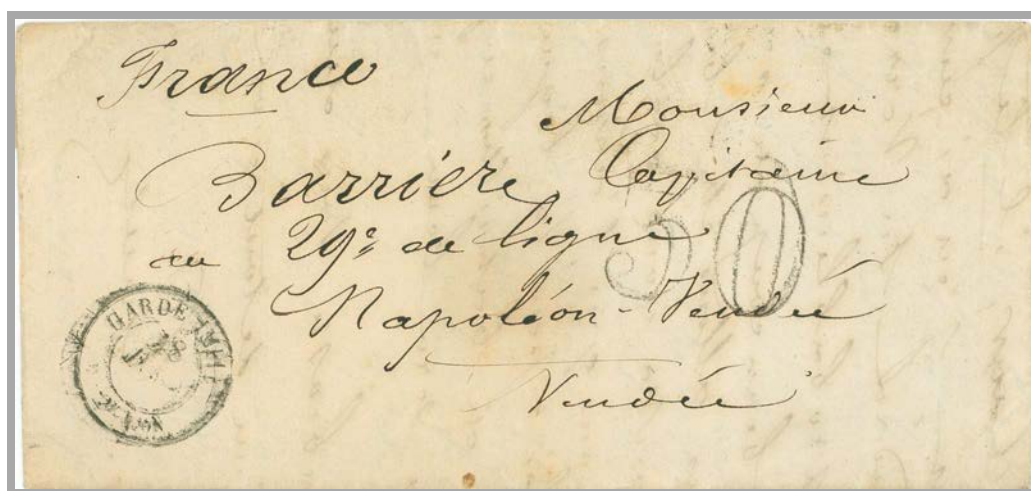 France
Monsieur
Barrière, Capitaine
au 29e de ligne
30
Napoléon-Vendée
Vendée
GARDE IMPLE
18